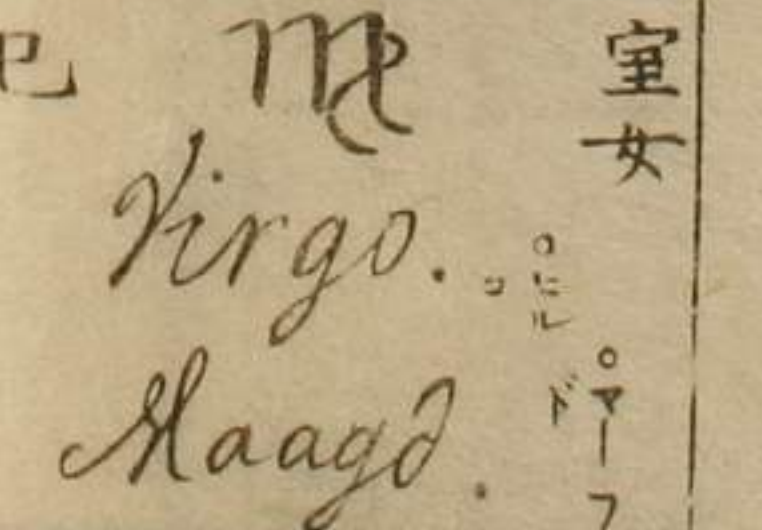 室女
♍
巳
Virgo.
○ヒル
コ
Maagd.
○マーフ
ド